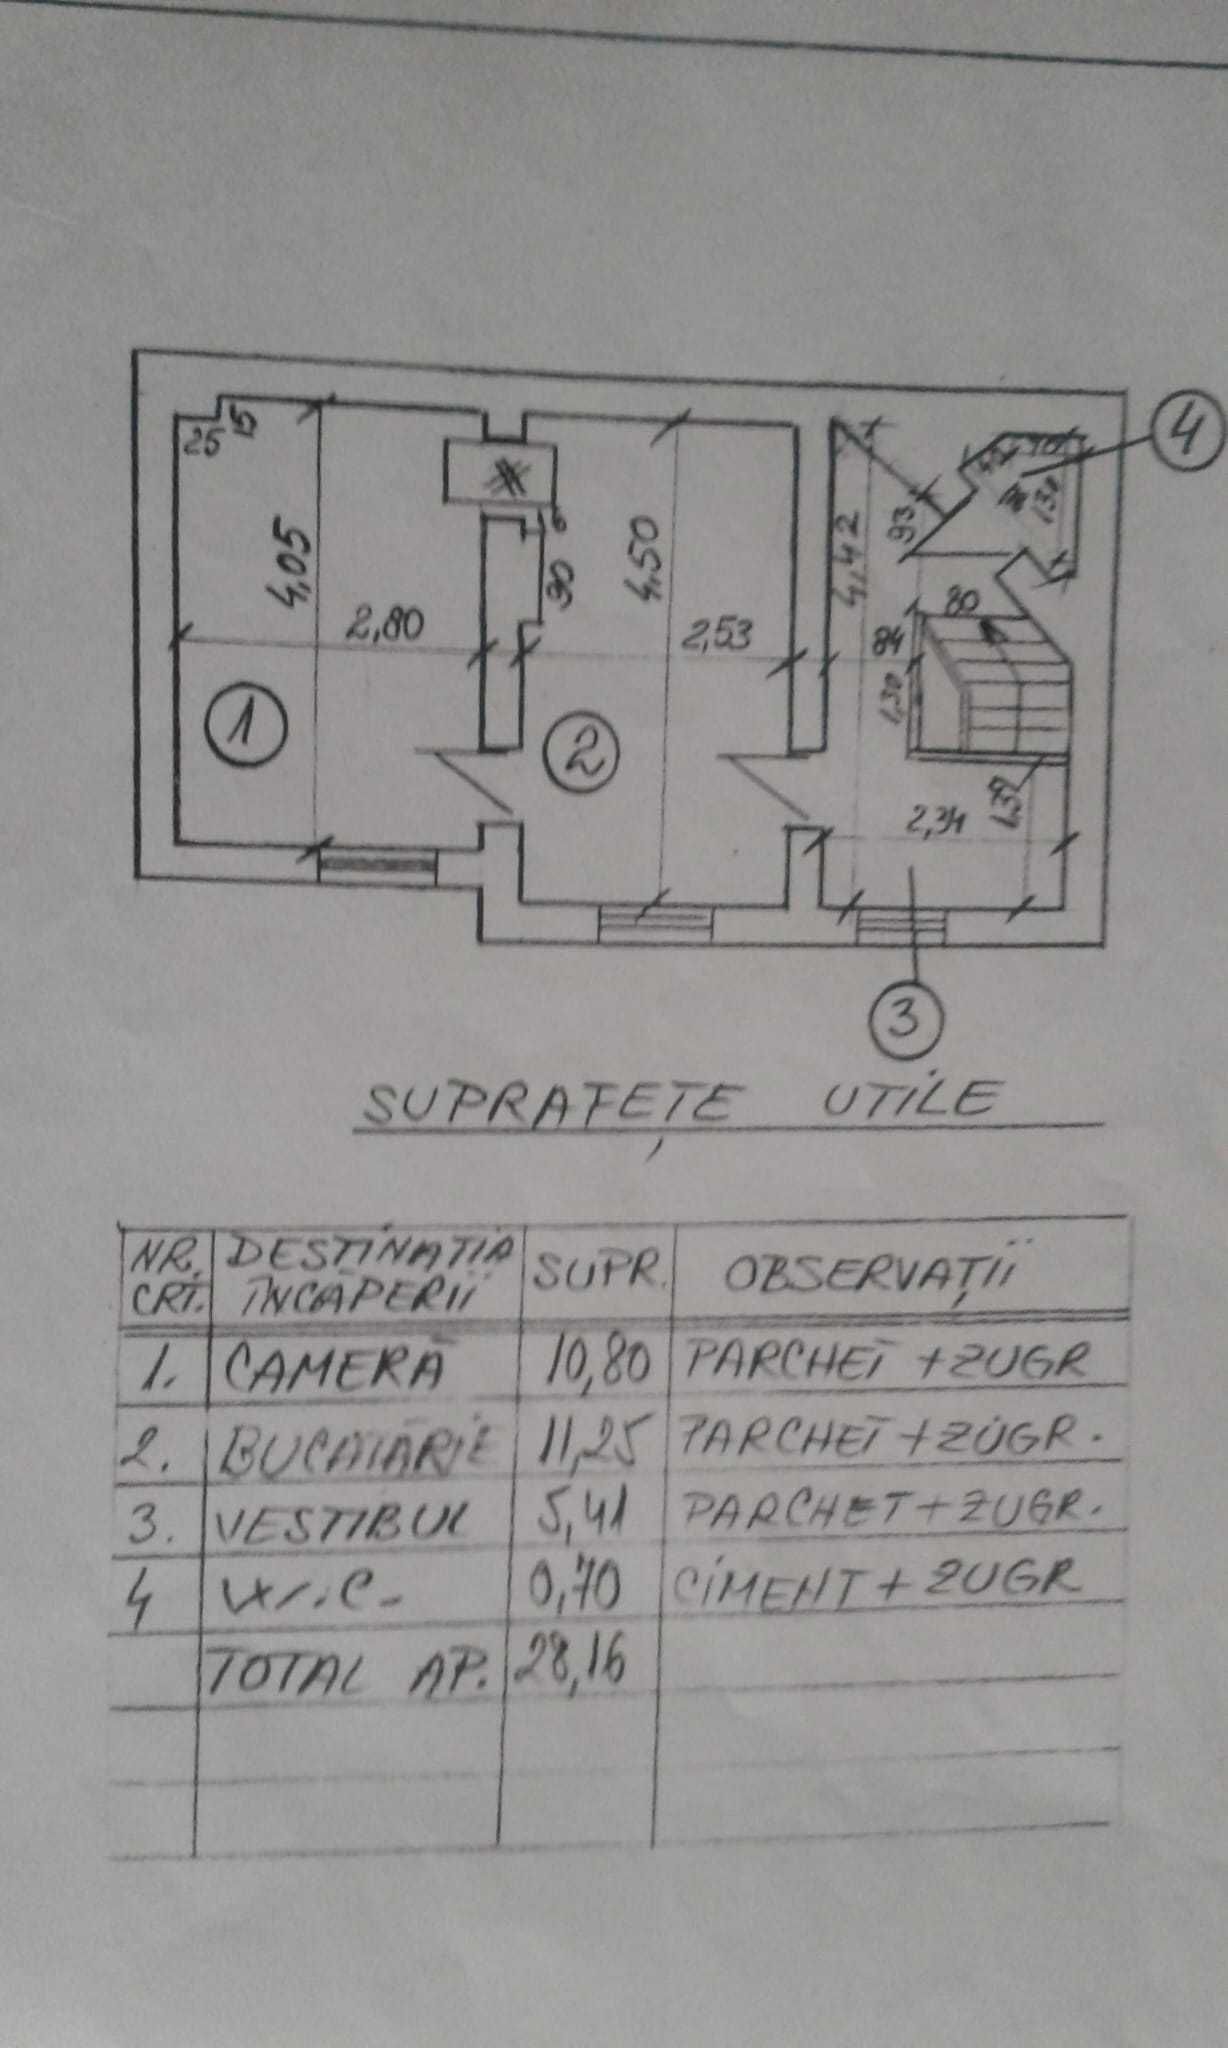 25 15
4,05
2,80
1
90
4,50
2,53
2
4,42
93
4
70
1,30
84
80
1,30
2,34
1,39
3
SUPRAFEȚE UTILE
NR. CRT. DESTINAȚIA ÎNCĂPERII SUPR. OBSERVAȚII
1. CAMERĂ 10,80 PARCHET + ZUGR
2. BUCĂTĂRIE 11,25 PARCHET + ZUGR.
3. VESTIBUL 5,41 PARCHET + ZUGR.
4 W.C. 0,70 CIMENT + ZUGR
TOTAL AP. 28,16